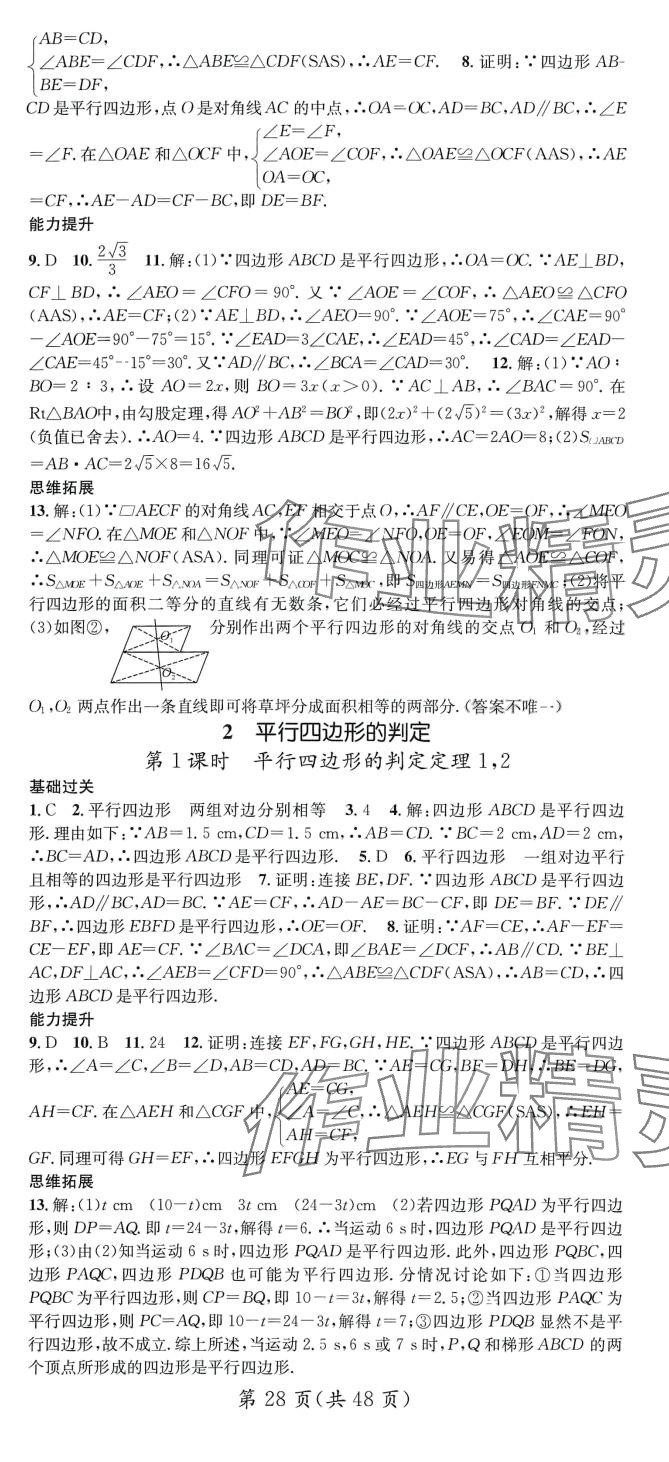 AB=CD,
∠ABE=∠CDF,∴△ABE≌△CDF(SAS),∴AE=CF. 8.证明:∵四边形 AB-
BE=DF,
CD是平行四边形,点O是对角线AC的中点,∴OA=OC,AD=BC,AD∥BC,∴∠E
∠E=∠F,
=∠F.在△OAE和△OCF中,∠AOE=∠COF,∴△OAE≌△OCF(AAS),∴AE
OA=OC,
=CF,∴AE-AD=CF-BC,即DE=BF.
能力提升
9.D 10.2√3/3 11.解:(1)∵四边形ABCD是平行四边形,∴OA=OC.∵AE⊥BD,
CF⊥BD,∴∠AEO=∠CFO=90°.又∵∠AOE=∠COF,∴△AEO≌△CFO
(AAS),∴AE=CF;(2)∵AE⊥BD,∴∠AEO=90°.∵∠AOE=75°,∴∠CAE=90°
-∠AOE=90°-75°=15°.∵∠EAD=3∠CAE,∴∠EAD=45°,∴∠CAD=∠EAD-
∠CAE=45°-15°=30°.又∵AD∥BC,∴∠BCA=∠CAD=30°. 12.解:(1)∵AO∶
BO=2∶3,∴设AO=2x,则BO=3x(x>0).∵AC⊥AB,∴∠BAC=90°.在
Rt△BAO中,由勾股定理,得AO²+AB²=BO²,即(2x)²+(2√5)²=(3x)²,解得x=2
(负值已舍去).∴AO=4.∵四边形ABCD是平行四边形,∴AC=2AO=8;(2)S▱ABCD
=AB·AC=2√5×8=16√5.
思维拓展
13.解:(1)∵▱AECF的对角线AC,EF相交于点O,∴AF∥CE,OE=OF,∴∠MEO
=∠NFO.在△MOE和△NOF中,∵∠MEO=∠NFO,OE=OF,∠EOM=∠FON,
∴△MOE≌△NOF(ASA).同理可证△MOC≌△NOA.又易得△AOE≌△COF,
∴S△MOE+S△AOE+S△NOA=S△NOF+S△COF+S△MOC,即S四边形AEMN=S四边形FNMC;(2)将平
行四边形的面积二等分的直线有无数条,它们必经过平行四边形对角线的交点;
(3)如图②, O₁ O₂ 分别作出两个平行四边形的对角线的交点O₁和O₂,经过
O₁,O₂两点作出一条直线即可将草坪分成面积相等的两部分.(答案不唯一)
2 平行四边形的判定
第1课时 平行四边形的判定定理1,2
基础过关
1.C 2.平行四边形 两组对边分别相等 3.4 4.解:四边形ABCD是平行四边
形.理由如下:∵AB=1.5 cm,CD=1.5 cm,∴AB=CD.∵BC=2 cm,AD=2 cm,
∴BC=AD,∴四边形ABCD是平行四边形. 5.D 6.平行四边形 一组对边平行
且相等的四边形是平行四边形 7.证明:连接BE,DF.∵四边形ABCD是平行四边
形,∴AD∥BC,AD=BC.∵AE=CF,∴AD-AE=BC-CF,即DE=BF.∵DE∥
BF,∴四边形EBFD是平行四边形,∴OE=OF. 8.证明:∵AF=CE,∴AF-EF=
CE-EF,即AE=CF.∵∠BAC=∠DCA,即∠BAE=∠DCF,∴AB∥CD.∵BE⊥
AC,DF⊥AC,∴∠AEB=∠CFD=90°,∴△ABE≌△CDF(ASA),∴AB=CD,∴四
边形ABCD是平行四边形.
能力提升
9.D 10.B 11.24 12.证明:连接EF,FG,GH,HE.∵四边形ABCD是平行四边
形,∴∠A=∠C,∠B=∠D,AB=CD,AD=BC.∵AE=CG,BF=DH,∴BE=DG,
AE=CG,
AH=CF.在△AEH和△CGF中,∠A=∠C,∴△AEH≌△CGF(SAS),∴EH=
AH=CF,
GF.同理可得GH=EF,∴四边形EFGH为平行四边形,∴EG与FH互相平分.
思维拓展
13.解:(1)t cm (10-t)cm 3t cm (24-3t)cm (2)若四边形PQAD为平行四边
形,则DP=AQ.即t=24-3t,解得t=6.∴当运动6 s时,四边形PQAD是平行四边
形;(3)由(2)知当运动6 s时,四边形PQAD是平行四边形.此外,四边形PQBC,四
边形PAQC,四边形PDQB也可能为平行四边形.分情况讨论如下:①当四边形
PQBC为平行四边形,则CP=BQ,即10-t=3t,解得t=2.5;②当四边形PAQC为
平行四边形,则PC=AQ,即10-t=24-3t,解得t=7;③四边形PDQB显然不是平
行四边形,故不成立.综上所述,当运动2.5 s,6 s或7 s时,P,Q和梯形ABCD的两
个顶点所形成的四边形是平行四边形.
第28页(共48页)
作业精灵
作业精灵